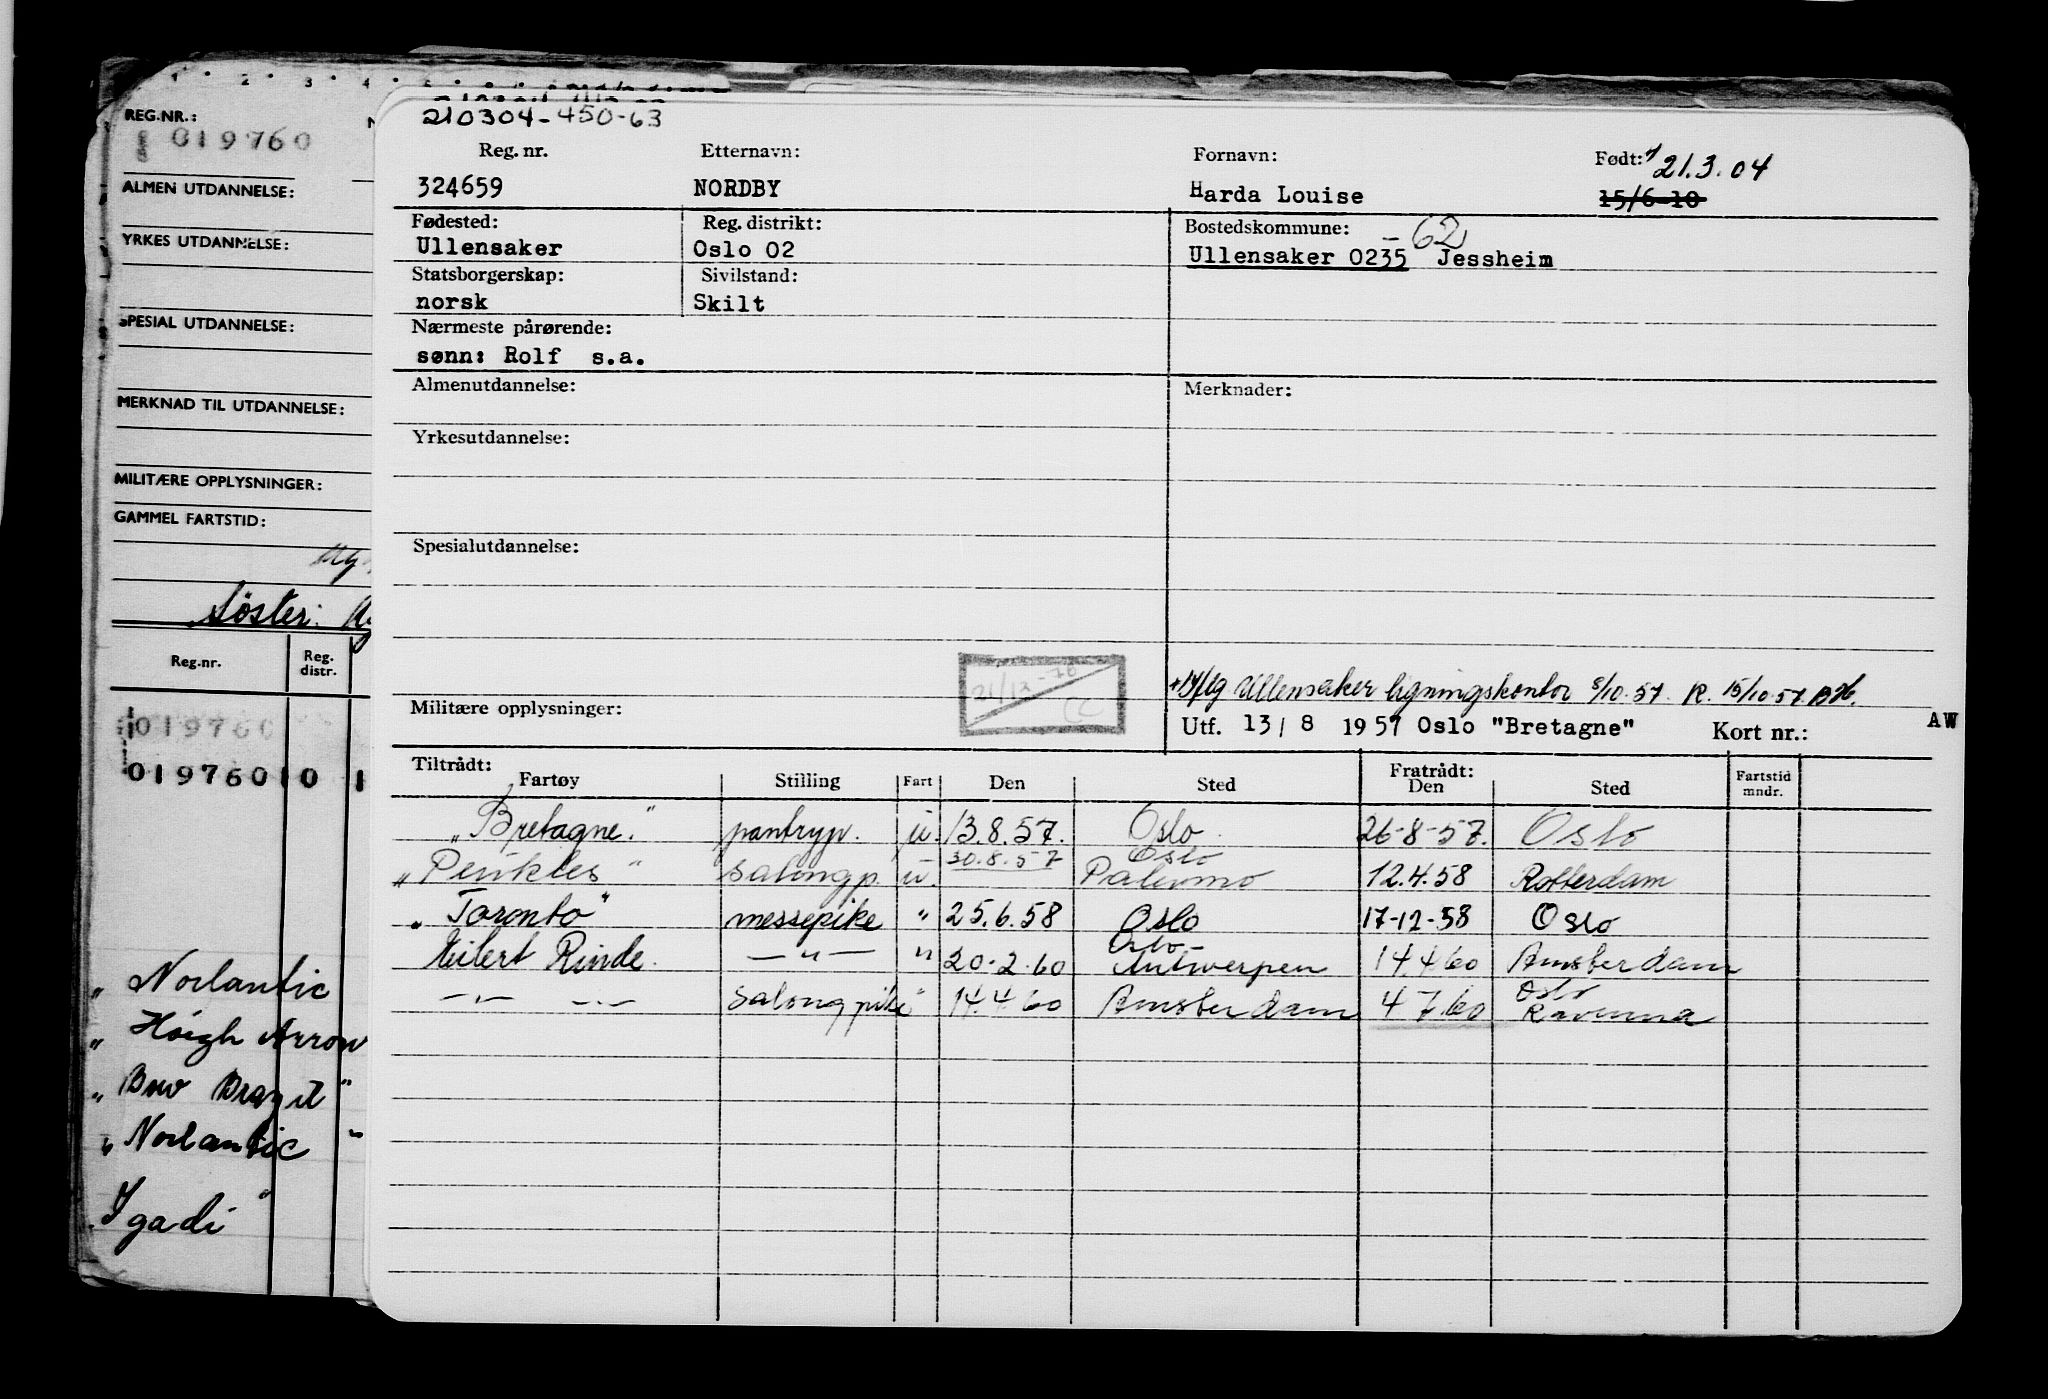 1 2 3 4 5
REG.NR.:
019760
ALMEN UTDANNELSE:
YRKES UTDANNELSE:
SPESIAL UTDANNELSE:
MERKNAD TIL UTDANNELSE:
MILITÆRE OPPLYSNINGER:
GAMMEL FARTSTID:
Söster:
Reg.nr. Reg. distr.
019760
019760 0 1
"Norlantic
"Höigh Arrow
"Bow Bragd"
"Norlantic"
Igadi"
210304-450-63
Reg. nr. Etternavn: Fornavn: Født: 21.3.04
324659 NORDBY Harda Louise 15/6-10
Fødested: Reg. distrikt: Bostedskommune: 62
Ullensaker Oslo 02 Ullensaker 0235 Jessheim
Statsborgerskap: Sivilstand:
norsk Skilt
Nærmeste pårørende:
sønn: Rolf s.a.
Almenutdannelse: Merknader:
Yrkesutdannelse:
Spesialutdannelse:
21/12-70
Ullensaker ligningskontor 8/10.57. R. 15/10.57.
Militære opplysninger: Utf. 13/8 1957 Oslo "Bretagne" Kort nr.: AW
Tiltrådt: Fratrådt:
Fartøy Stilling Fart Den Sted Den Sted Fartstid mndr.
"Bretagne." pantryp. u. 13.8.57. Oslo 26-8-57. Oslo
30.8.57 Oslo
"Perikles" salongp. u. Palermo 12.4.58 Rotterdam
"Toronto" messepike " 25.6.58 Oslo 17-12-58 Oslo
Oslo
Eilert Rinde. — " — " 20-2.60 Antwerpen 14.4.60 Amsterdam
Oslo
—"— —"— Salongpike " 14.4.60 Amsterdam 4.7.60 Ravenna